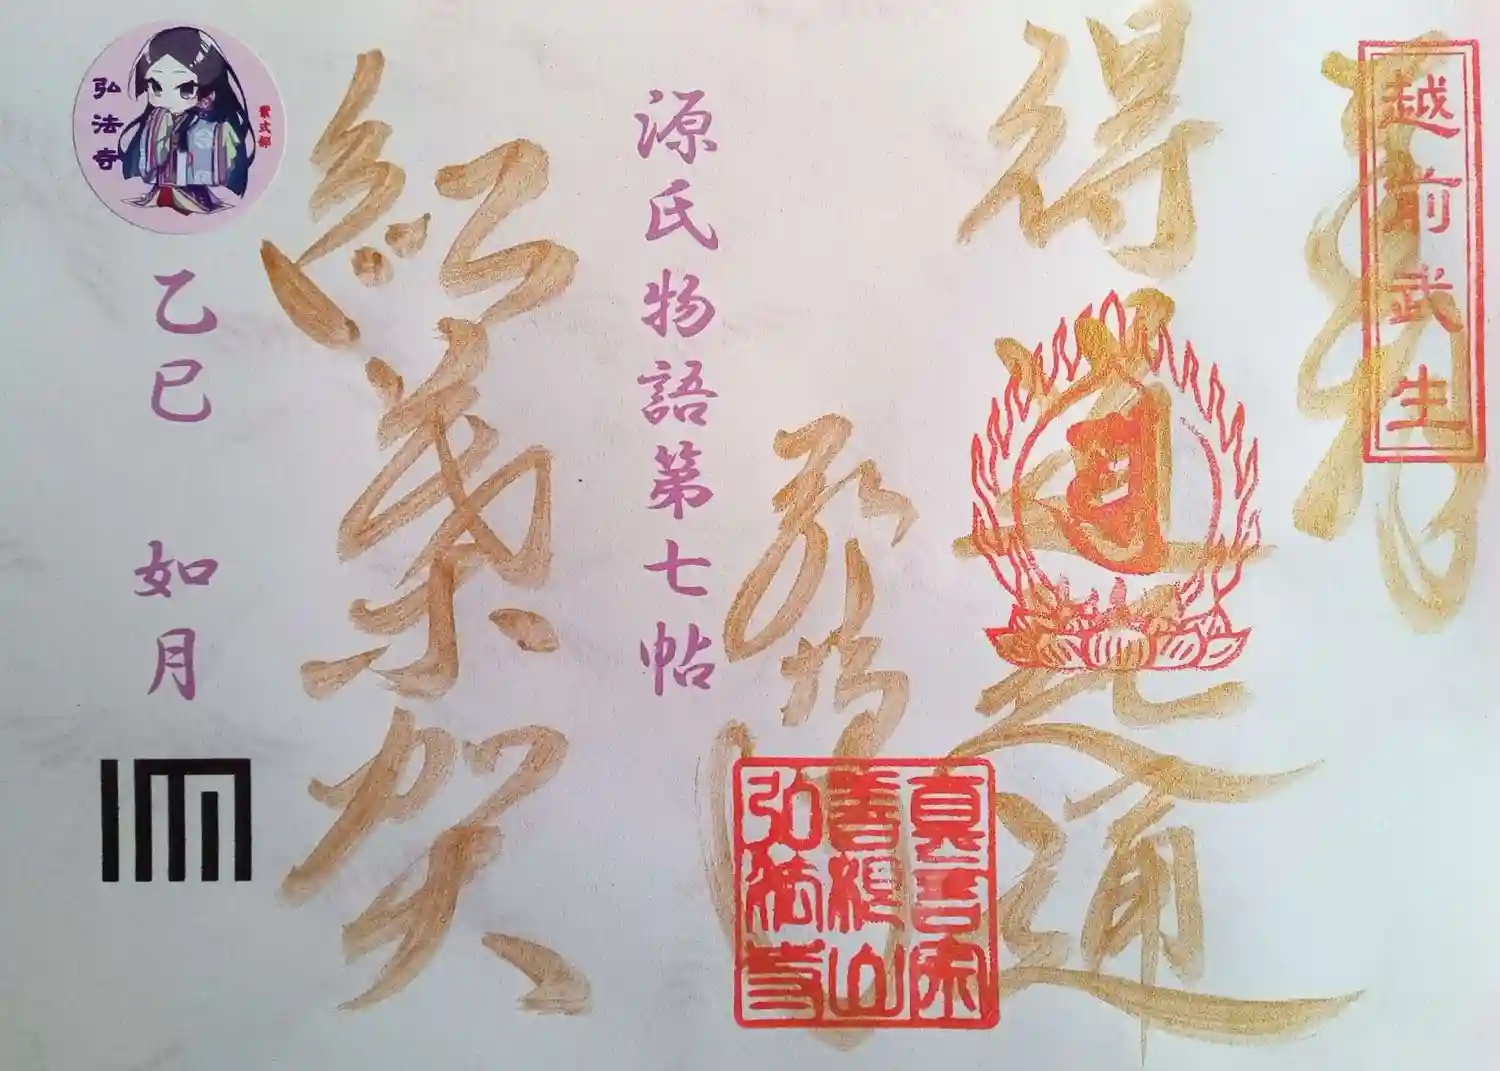 越前武生
得
通
真言宗
善
山
弘法寺
源氏物語第七帖
紅葉賀
紫式部
弘法寺
乙巳 如月